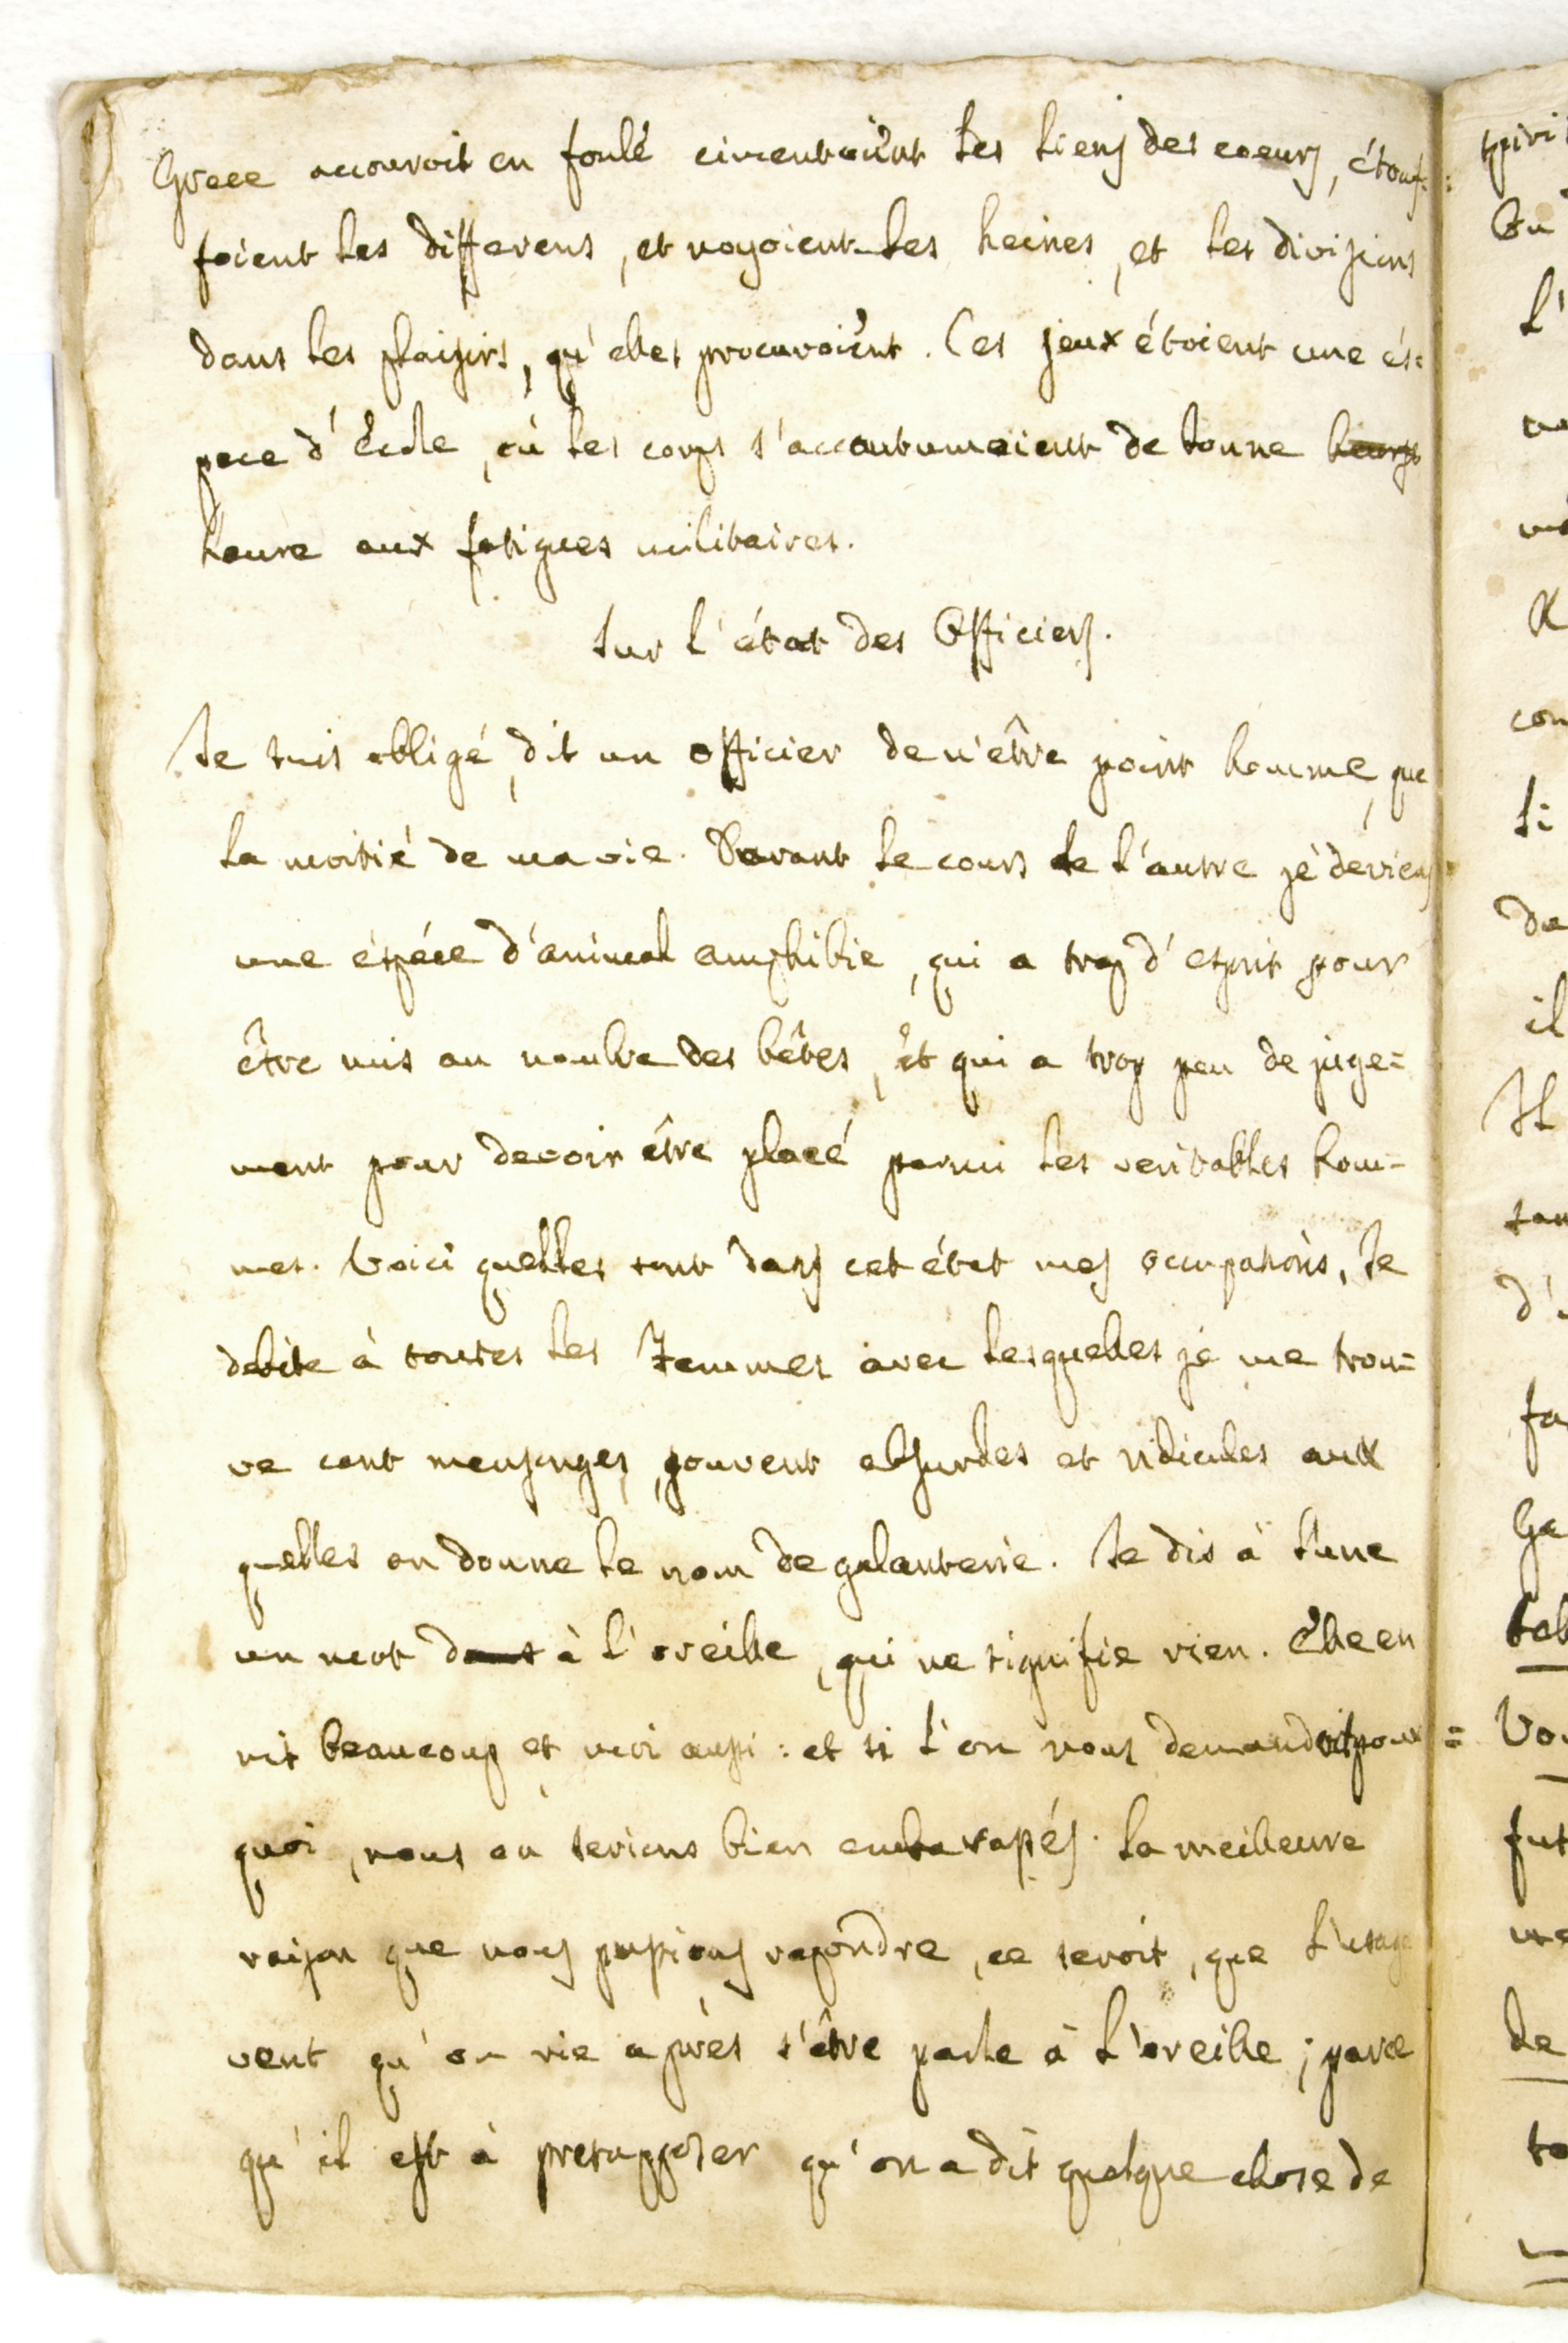 Grece accouroit en foulé cimentoi'ent les liens des coeurs, étouf=
foient les differens, et noyoient les heines, et les divisions
dans les plaisirs, qu'elles procuroi'ent. Ces jeux étoient une és=
pece d'École, où les corps s'accoutumoient de bonne
heure aux fatigues militaires.
Sur l'état des Officiers.
Je suis obligé, dit un officier de n'être point homme, que
la moitié de ma vie. Durant le cours de l'autre jé deviens
une éspéce d'animal amphibie, qui a trop d'esprit pour
être mis au nombre des bêtes, et qui a trop peu de juge=
ment pour devoir être placé parmi les veritables hom=
mes. Voici quelles sont dans cet état mes occupations, Je
debite à toutes les Femmes avec lesquelles jé me trou=
ve cent mensonges, souvent absurdes et ridicules aux
quelles on donne le nom de galanterie. Je dis à l'une
un mot à l'oreille, qui ne signifie rien. Elle en
rit beaucoup et moi aussi : et si l'on nous demandoit pour =
quoi, nous en serions bien embarassés. La meilleure
raison que nous pussions repondre, ce seroit, que l'usage
veut qu'on rie après s'être parle à l'oreille ; parce
qu'il est à presupposer qu'on a dit quelque chose de
Vou
fut
de
il
Il
si
con